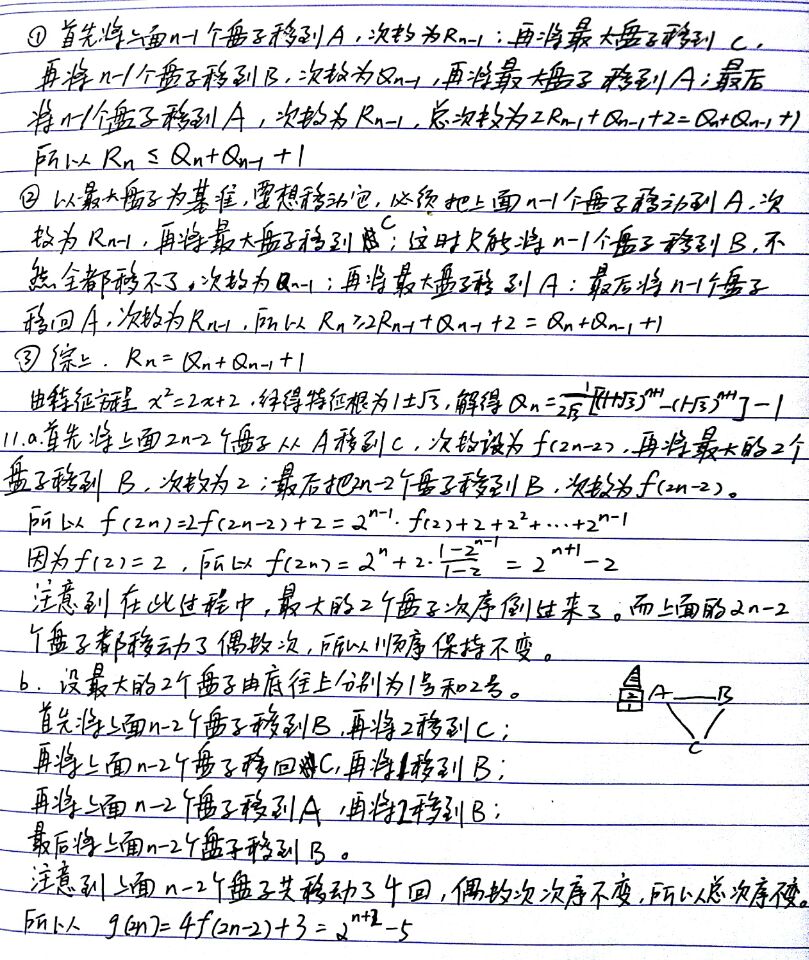 ① 首先将上面n-1个盘子移到A，次数为Rn-1；再将最大盘子移到C，
再将n-1个盘子移到B，次数为Qn-1，再将最大盘子移到A；最后
将n-1个盘子移到A，次数为Rn-1，总次数为2Rn-1+Qn-1+2=Qn+Qn-1+1
所以 Rn ≤ Qn+Qn-1+1
② 以最大盘子为基准，要想移动它，必须把上面n-1个盘子移动到A，次
数为Rn-1，再将最大盘子移到C；这时只能将n-1个盘子移到B，不
然全都移不了。次数为Qn-1；再将最大盘子移到A；最后将n-1个盘子
移回A，次数为Rn-1，所以 Rn≥2Rn-1+Qn-1+2=Qn+Qn-1+1
③ 综上，Rn=Qn+Qn-1+1
由特征方程 x²=2x+2，解得特征根为1±√3，解得 Qn=1/(2√3)[(1+√3)^(n+1)-(1-√3)^(n+1)]-1
11.a.首先将上面2n-2个盘子从A移到C，次数设为f(2n-2)，再将最大的2个
盘子移到B，次数为2；最后把2n-2个盘子移到B，次数为f(2n-2)。
所以 f(2n)=2f(2n-2)+2=2^(n-1)·f(2)+2+2²+···+2^(n-1)
因为f(2)=2，所以 f(2n)=2^n+2·(1-2^(n-1))/(1-2)=2^(n+1)-2
注意到在此过程中，最大的2个盘子次序倒过来了。而上面的2n-2
个盘子都移动了偶数次，所以顺序保持不变。
b. 设最大的2个盘子由底往上分别为1号和2号。
2 1 A B
首先将上面n-2个盘子移到B，再将2移到C；
C
再将上面n-2个盘子移回C，再将1移到B；
再将上面n-2个盘子移到A，再将2移到B；
最后将上面n-2个盘子移到B。
注意到上面n-2个盘子共移动了4回，偶数次次序不变，所以总次序不变。
所以 g(2n)=4f(2n-2)+3=2^(n+2)-5